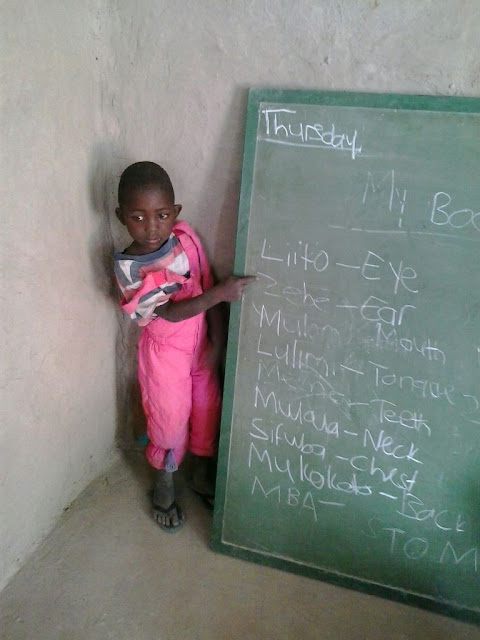 Thursday
My Bo
Liito - Eye
Zebe - Ear
Mulomo - Mouth
Lulimi - Tongue
- Teeth
Mulala - Neck
Sifuba - Chest
Mukokoto - Back
MBA - STOM